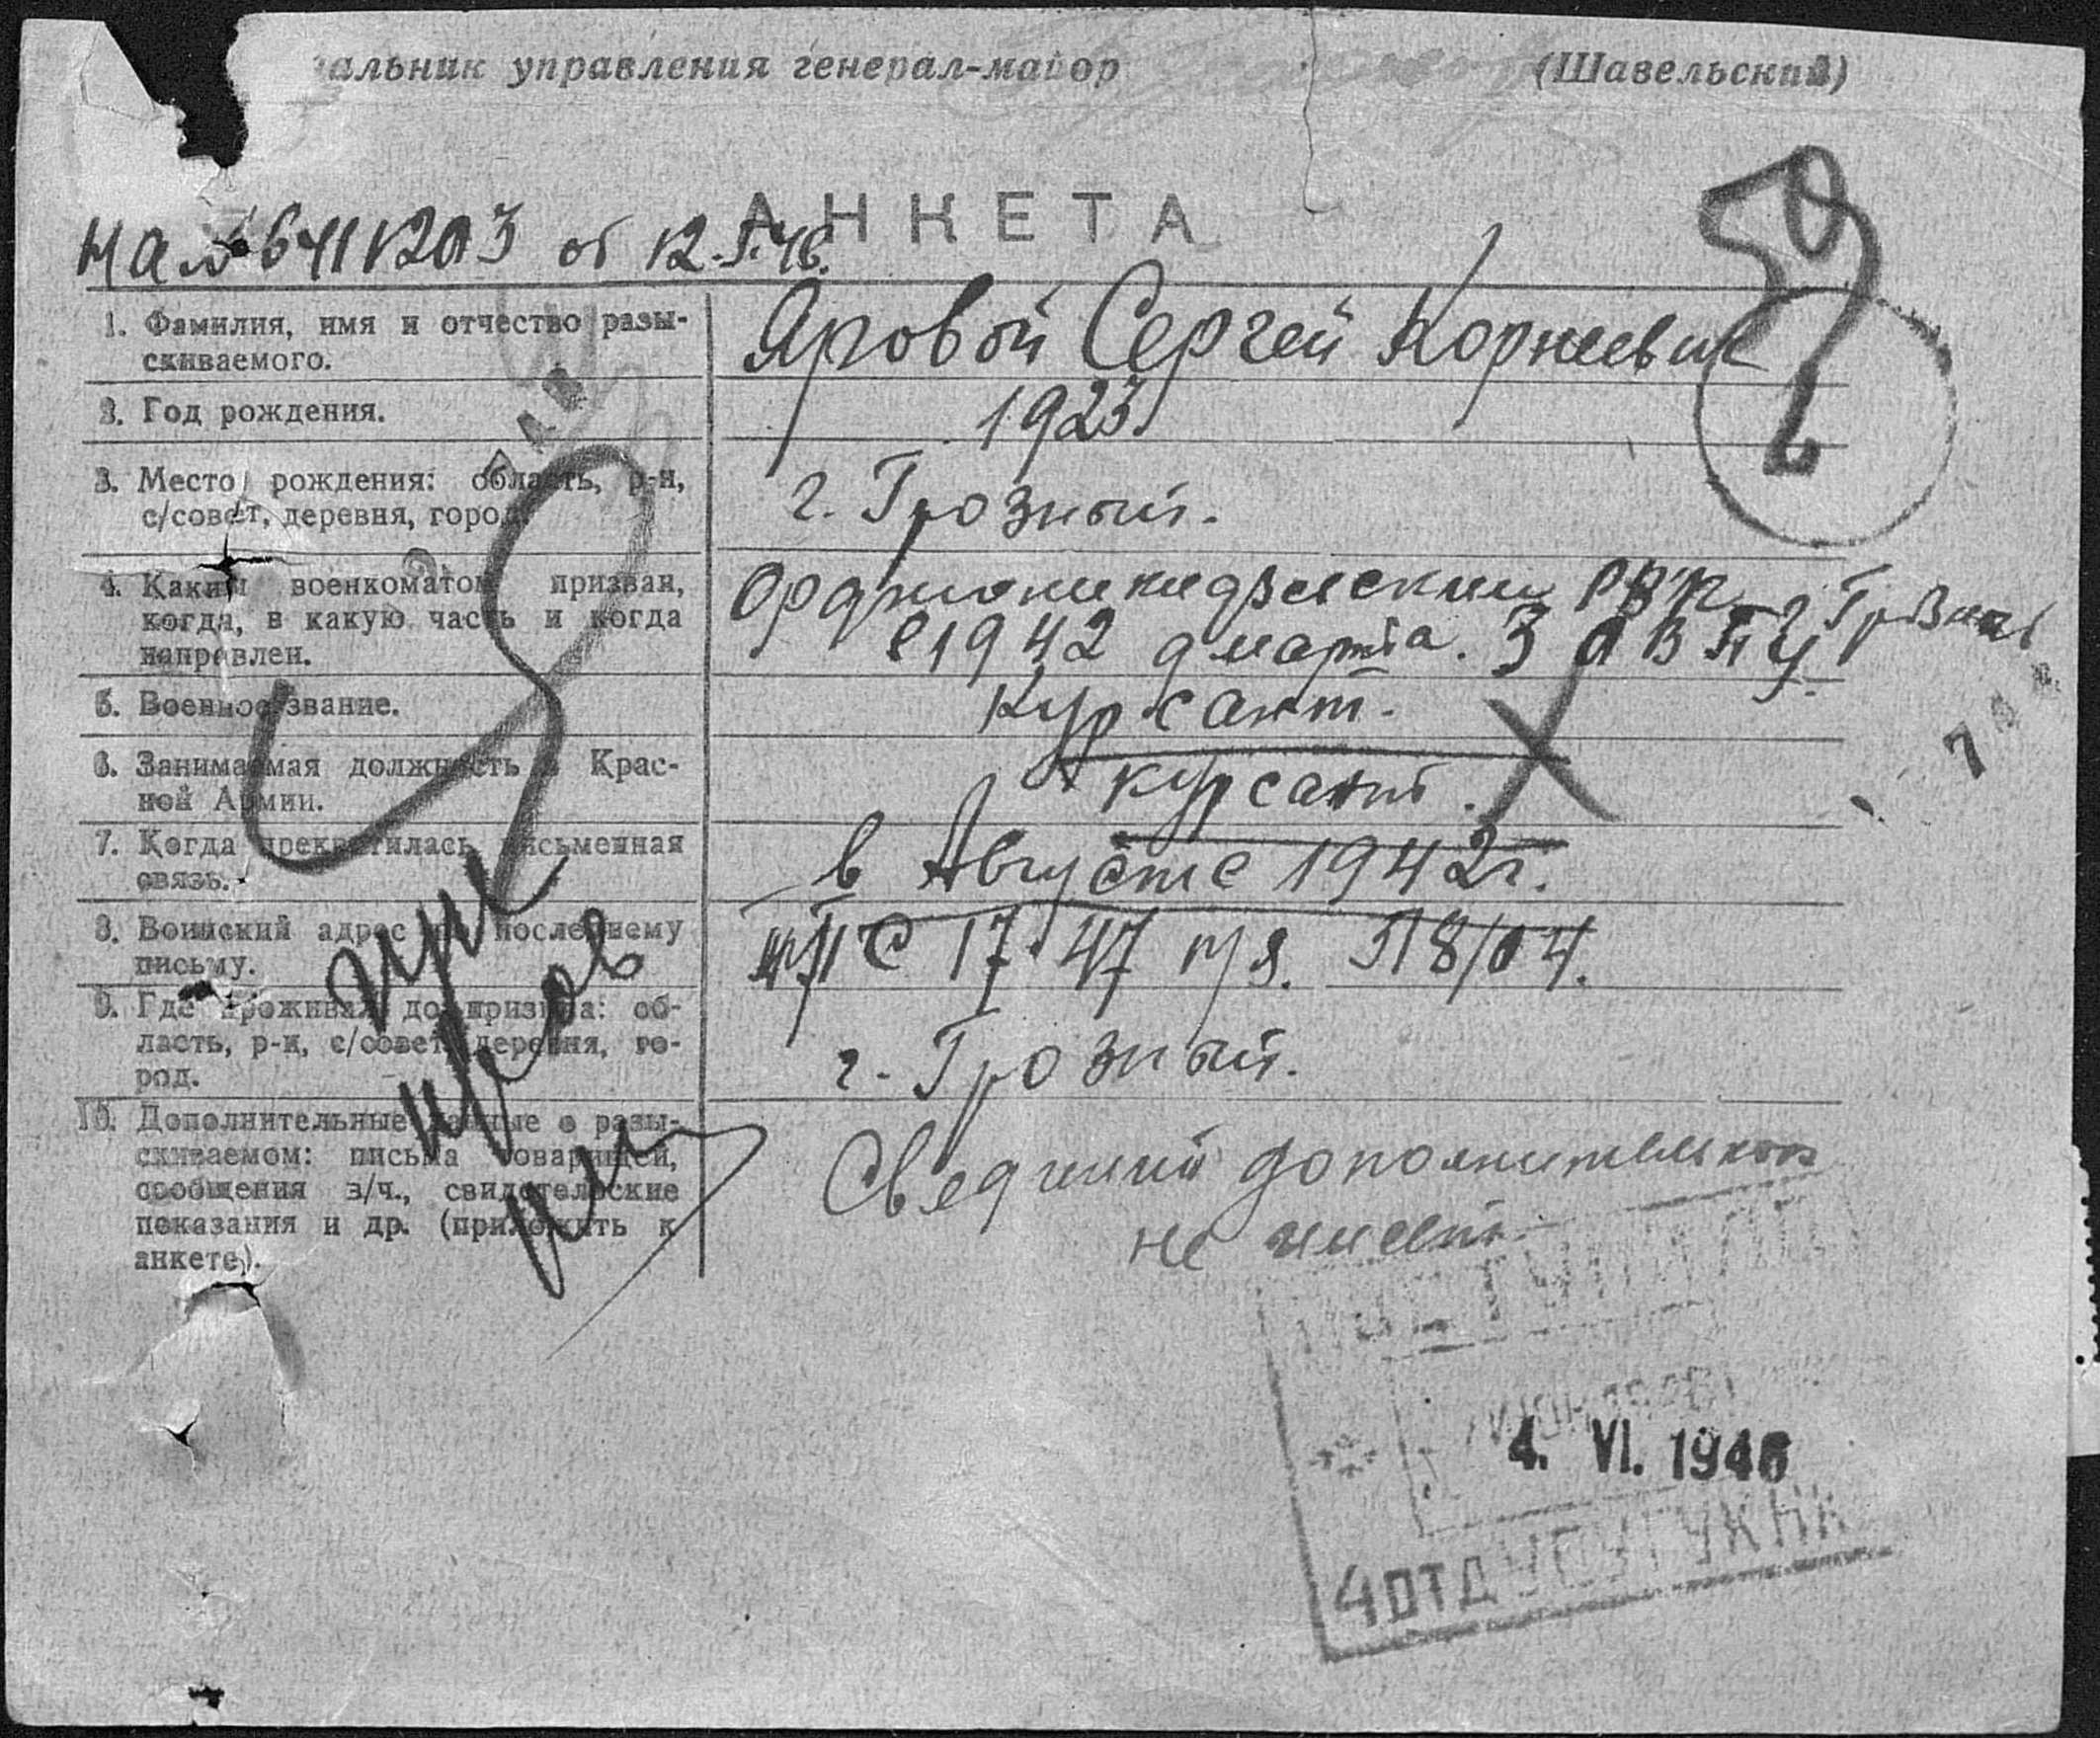 альник управления генерал-майор (Шавельский)
АНКЕТА
на № 641120 от 12.5.46.
1. Фамилия, имя и отчество разы-
скиваемого.
Яровой Сергей Корнеевич
2. Год рождения.
1923
3. Место рождения: область, р-н,
с/совет, деревня, город.
г. Грозный.
4. Каким военкоматом призван,
когда, в какую часть и когда
направлен.
Орджоникидзевским РВК г Грозный
с 1942 9 марта. 3
5. Военное звание.
Курсант.
6. Занимаемая должность в Крас-
ной Армии.
курсант.
7. Когда прекратилась письменная
связь.
в Августе 1942г.
8. Воинский адрес по последнему
письму.
ППС 1747 п/я. 518/04.
9. Где проживал до призыва: об-
ласть, р-н, с/совет, деревня, го-
род.
г. Грозный.
10. Дополнительные данные о разы-
скиваемом: письма товарищей,
сообщения в/ч., свидетельские
показания и др. (приложить к
анкете).
Сведений дополнительных
не имеет.
ПОСТУПИЛА
4. VI. 1946
4 ОТД УПУГУКНА